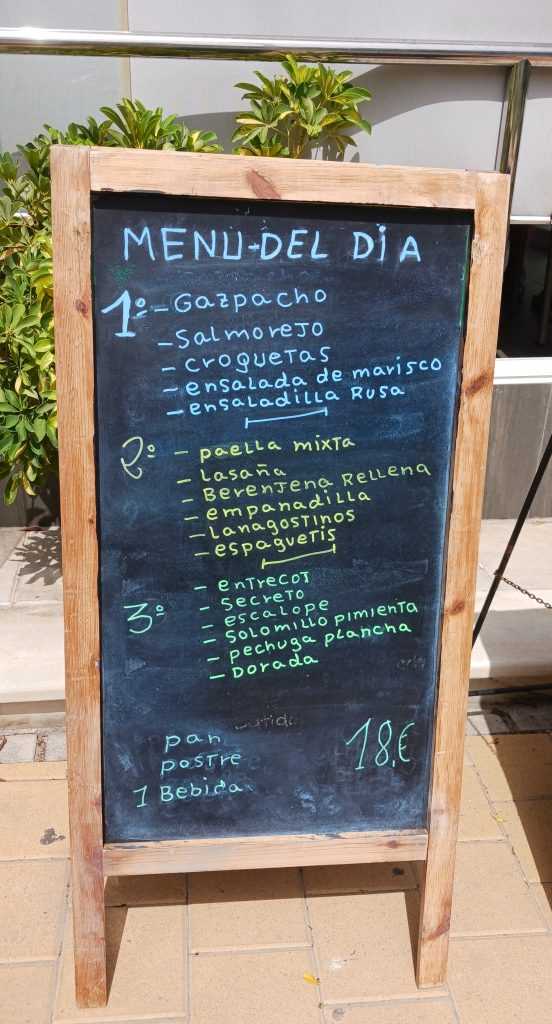 MENU-DEL DIA
1º - Gazpacho
- Salmorejo
- croquetas
- ensalada de marisco
- ensaladilla Rusa
2º - paella mixta
- Lasaña
- Berenjena Rellena
- empanadilla
- Lanagostinos
- espaguetis
3º - entrecot
- Secreto
- escalope
- Solomillo pimienta
- pechuga plancha
- Dorada
pan
postre
1 Bebida
18,€